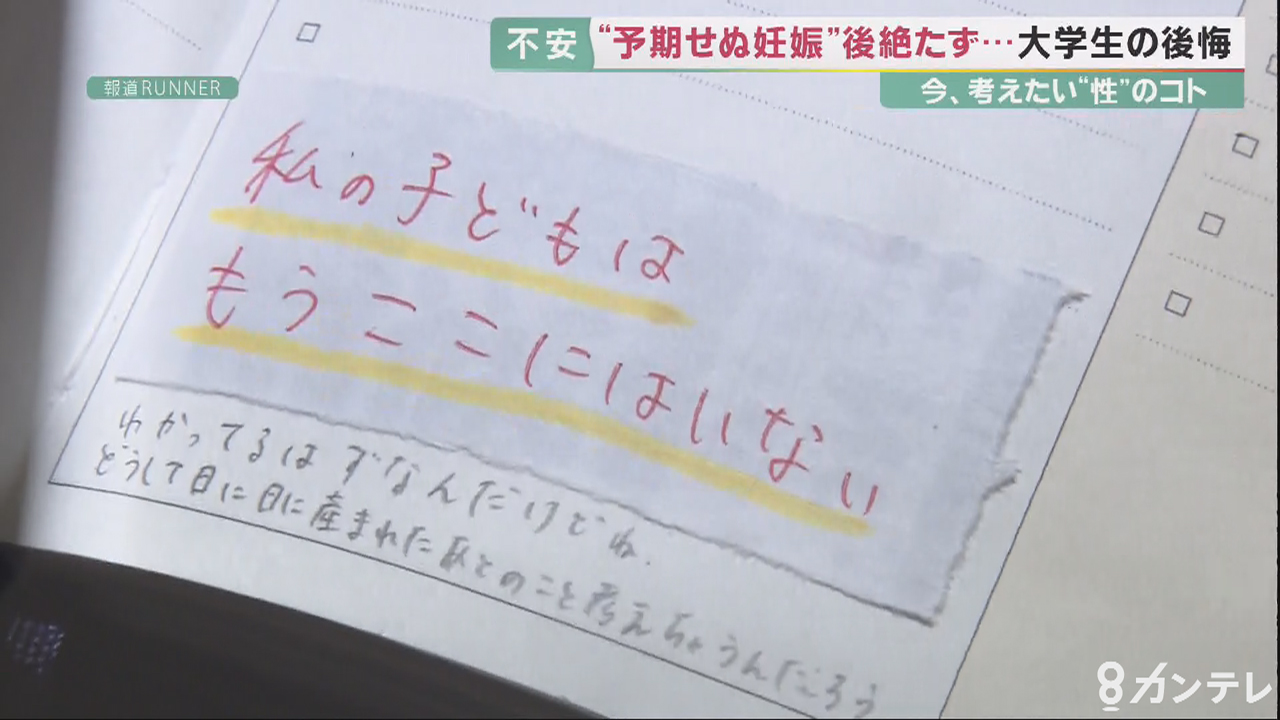 不安 “予期せぬ妊娠”後絶たず…大学生の後悔
今、考えたい“性”のコト
報道RUNNER
私の子どもは
もうここにはいない
わかってるはずなんだけどね.
どうして日に日に産まれたあとのこと考えちゃうんだろう
8カンテレ